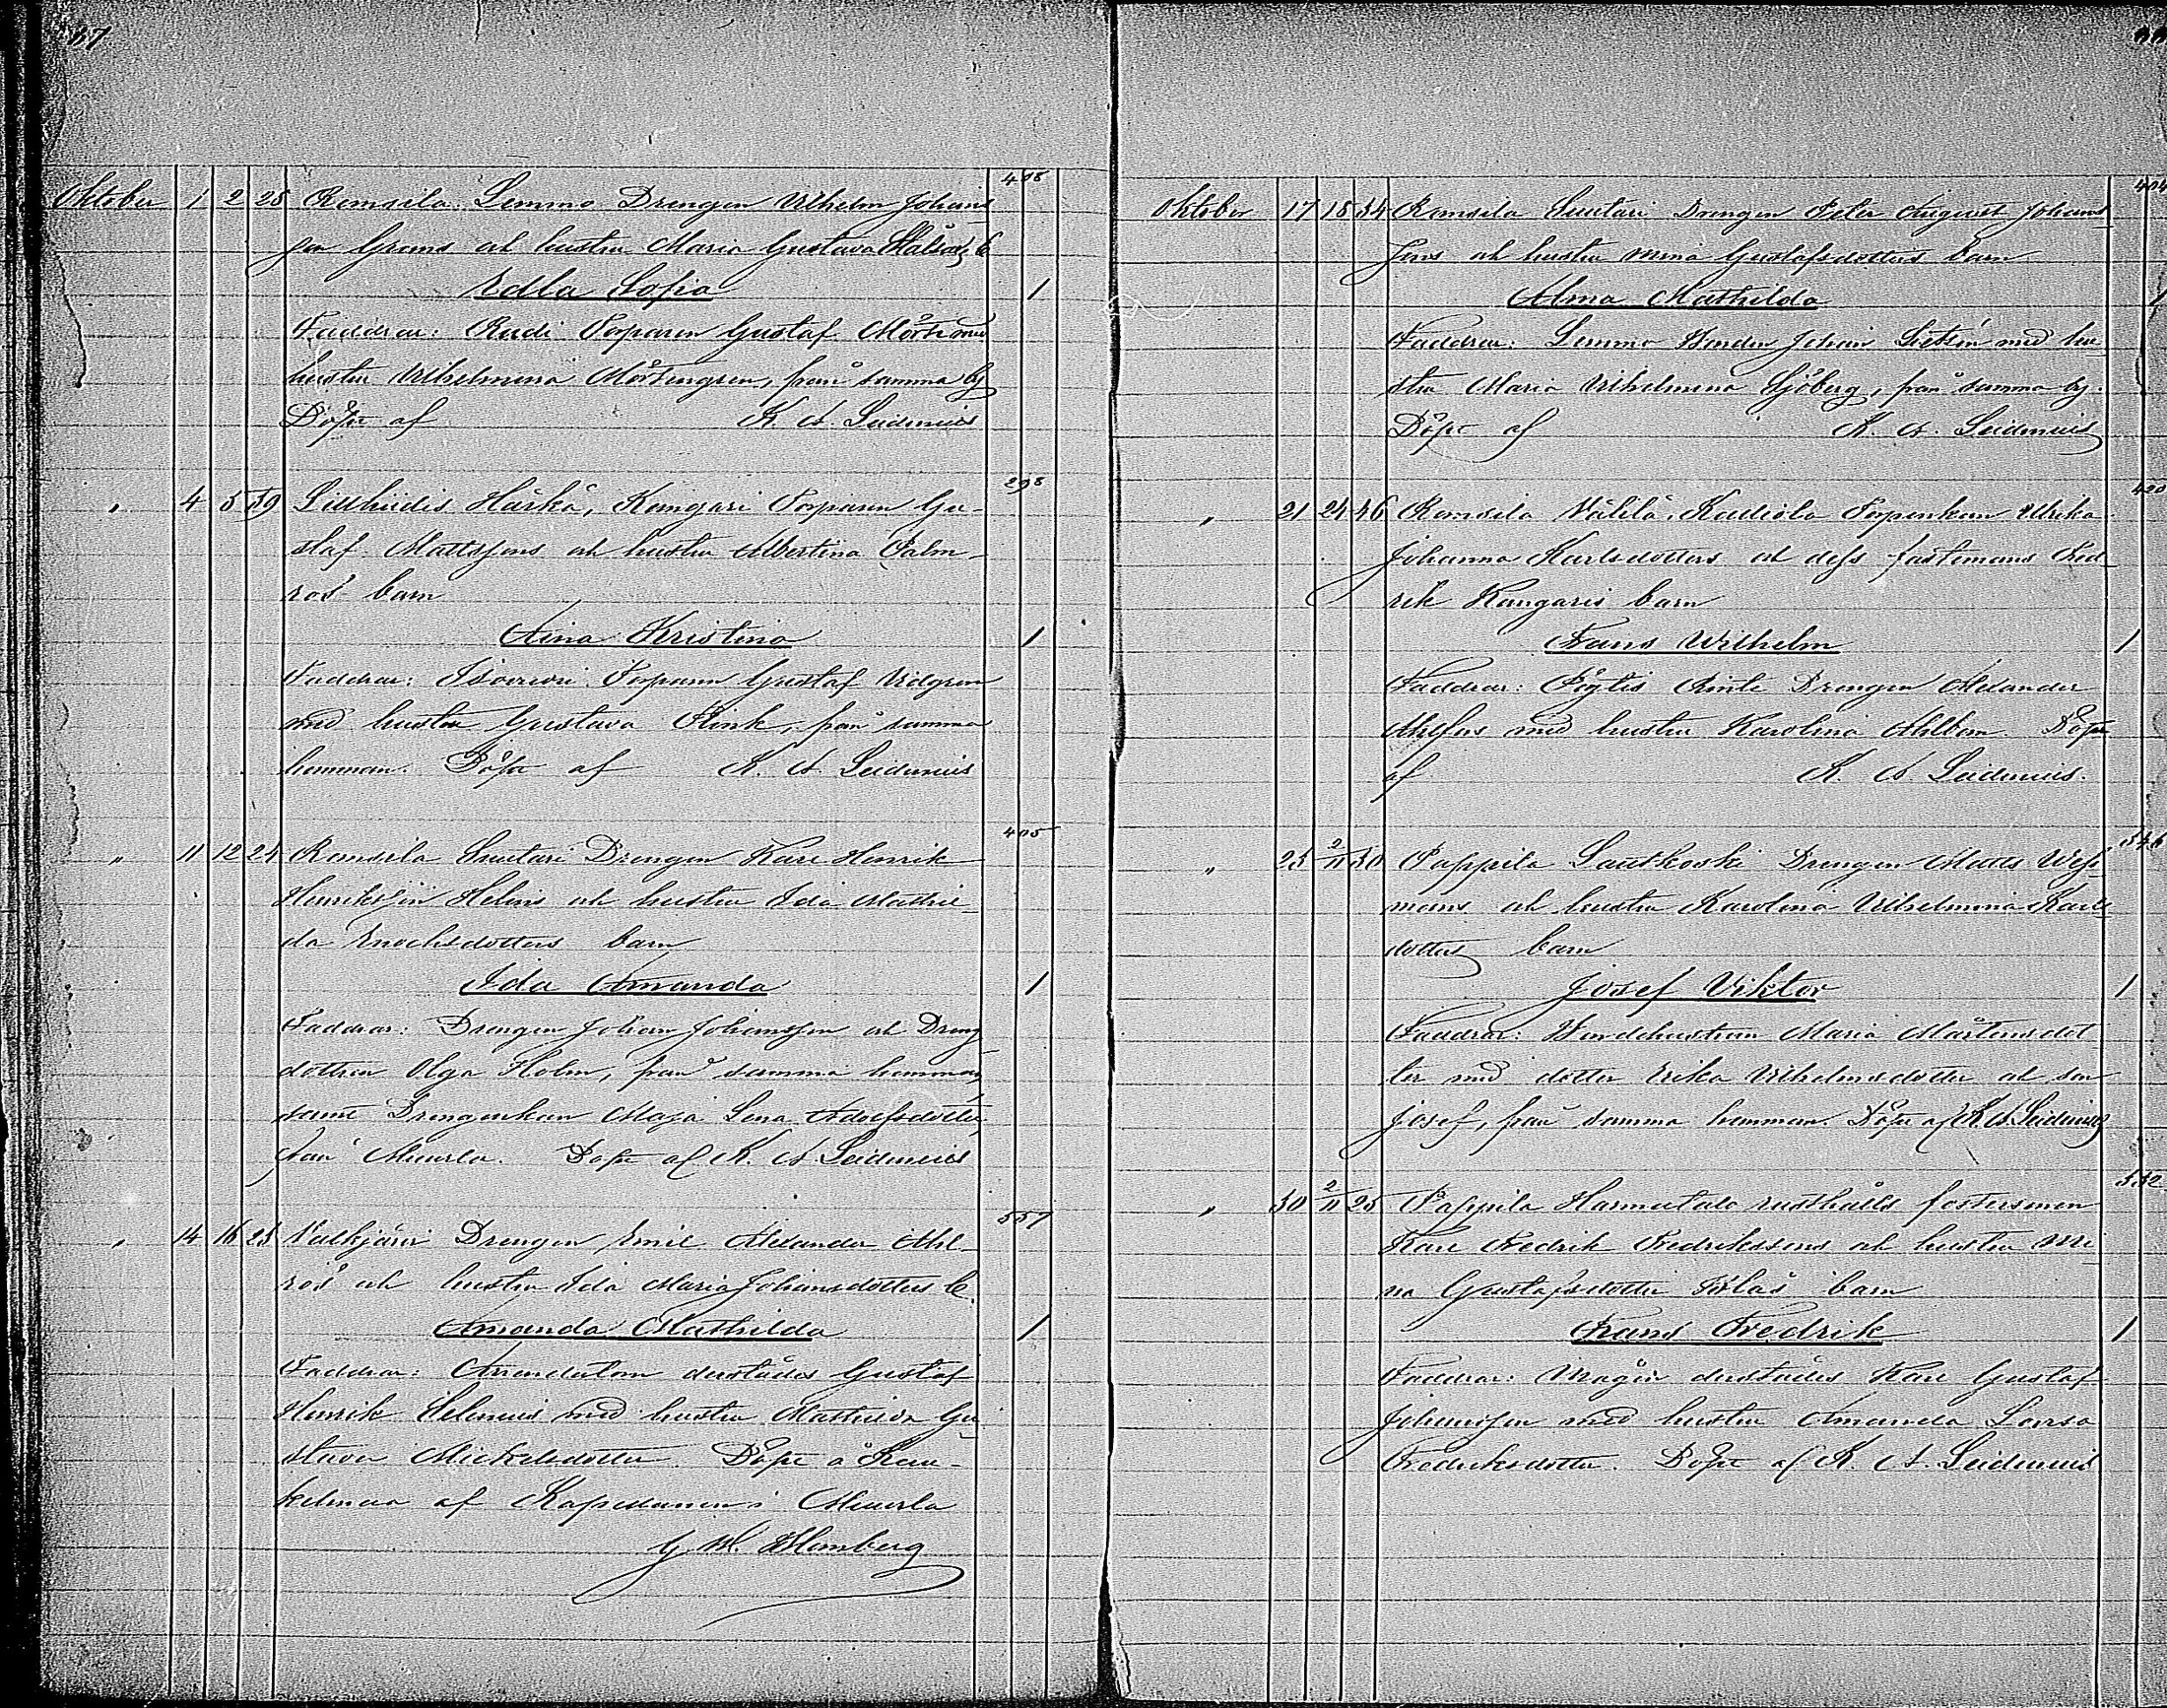 408
Oktober 1 2 28 Remsila Lemmo Drengen Vilhelm Johans
son Grans och hustru Maria Gustava b
Edla Sofia 1
Faddrar: Rudi Torparen Gustaf
hustru Vilhelmina Mårtengren, från samma by
Döpt af K. A. Leidenius
298
„ 4 5 39 Lillhiidis Härkä, Kangari Torparen Gu-
staf Mattssons och hustru Albertina Palm-
ros' barn
Aina Kristina 1
Faddrar: Torparen Gustaf Vidgren
med hustru Gustava Flink, från samma
hemman. Döpt af K. A. Leidenius
405
„ 11 12 24 Remsila Suutari Drengen Karl Henrik
Henriksson Helins och hustru Ida Mathil-
da Enochsdotters barn
Ida Amanda 1
Faddrar: Drengen Johan Johansson och Dreng
dottren Olga Holm, från samma hemman,
samt Drengenkan Maja Lena Adolfsdotter
från Muurla. Döpt af K. A. Leidenius
557
„ 14 16 25 Valkjärvi Drengen Emil Alexander Ahl-
ros' och hustru Ida Maria Johansdotters b.
Amanda Mathilda 1
Faddrar: Arendatorn derstädes Gustaf
Henrik Helenius med hustru Mathilda Gu
stava Mickelsdotter. Döpt å Kau-
kelmaa af Kapellanen i Muurla
G. W. Blomberg
404
Oktober 17 18 34 Remsila Suutari Drengen Peter August Johans
sons och hustru Mina Gustafsdotters barn
Alma Mathilda 1
Faddrar: Lemmo Bonden Johan med hu
stru Maria Vilhelmina Sjöberg, från samma by.
Döpt af K. A. Leidenius
420
„ 21 24 46 Remsila Välilä, Kadiola Torpenkan Ulrika
Johanna Karlsdotters och dess fästemans Fred-
rik Kangaris barn
Frans Wilhelm 1
Faddrar: Pöytiö Drengen Alexander
Ahlfors med hustru Karolina Ahlbom. Döpt
af K. A. Leidenius.
546
„ 25 2/11 30 Pappila Santkoski Drengen Matts Weck-
mans och hustru Karolina Vilhelmina Karls
dotters barn
Josef Viktor 1
Faddrar: Bondehustrun Maria Mårtensdot
ter med dotter Erika Vilhelmsdotter och son
Josef, från samma hemman. Döpt af K. A. Leidenius
532
„ 30 2/11 25 Pappila Hermutala rusthålls fostersonen
Karl Fredrik Fredrikssons och hustru Mi
na Gustafsdotter barn
Frans Fredrik 1
Faddrar: Mågen derstädes Karl Gustaf
Johansson med hustru Amanda Lovisa
Fredriksdotter. Döpt af K. A. Leidenius